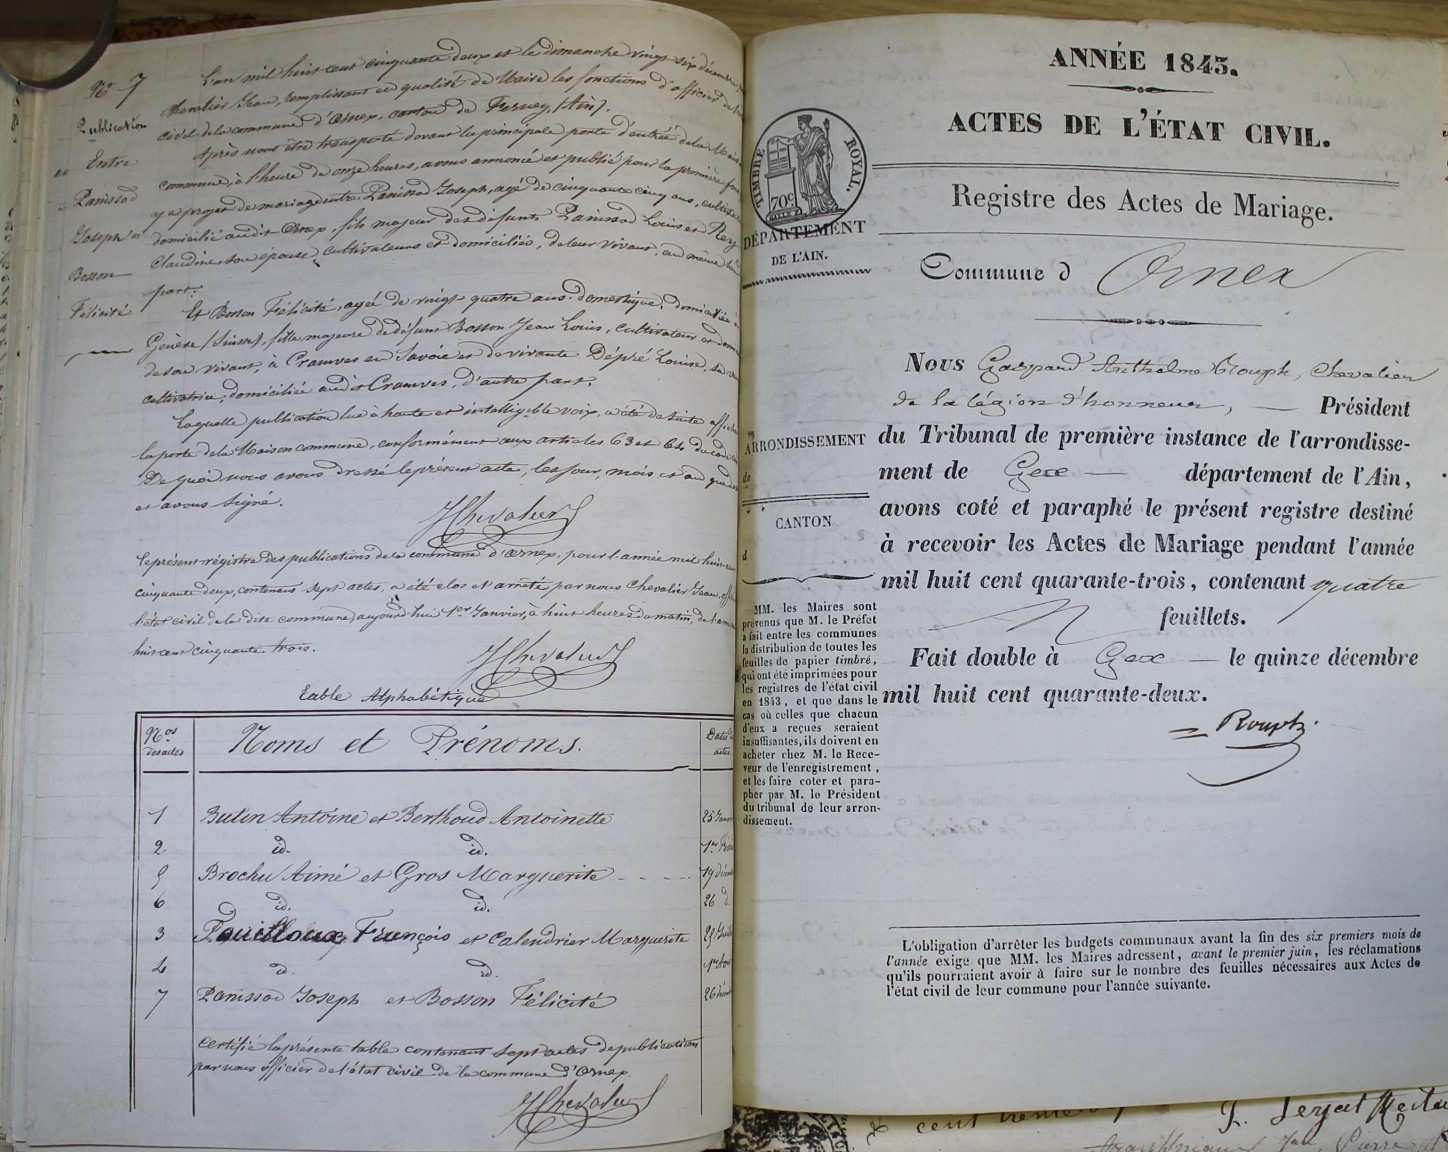 N.o 7
Publication
Entre
Panissod
Joseph et
Bosson
Félicité
L'an mil huit cent cinquante deux et le dimanche vingt six décembre
Chevalier Jean, remplissant en qualité de Maire les fonctions d'officier de l'état
civil de la commune d'Ornex, canton de Ferney, (Ain).
Après nous être transporté devant la principale porte d'entrée de la Maison
commune, à l'heure de onze heures, avons annoncé et publié pour la première fois
y a projet de mariage entre Panissod Joseph, agé de cinquante cinq ans, cultivateur
domicilié audit Ornex, fils majeur des défunts Panissod Louis et Rey
Claudine, son épouse, cultivateurs et domiciliés, de leur vivant, au même
part;
Et Bosson Félicité, agée de vingt quatre ans, domestique, domiciliée à
Genève (Suisse), fille majeure de défunt Bosson Jean Louis, cultivateur et
de son vivant, à Cranves en Savoie et de vivante Dépré Louise, sa
cultivatrice, domiciliée audit Cranves, d'autre part.
Laquelle publication lue à haute et intelligible voix, a été de suite affichée
la porte de la Maison commune, conformément aux articles 63 et 64 du code
De quoi nous avons dressé le présent acte, les jour, mois et an que
et avons signé.
JChevalier
Le présent régistre des publications de la commune d'Ornex, pour l'année mil huit cent
cinquante deux, contenant sept actes, a été clos et arrêté par nous Chevalier Jean,
l'état civil de la dite commune, aujourd'hui 1er Janvier, à huit heures du matin, de l'an
huit cent cinquante trois.
JChevalier
Table Alphabétique
Nos des actes Noms et Prénoms. Dates des actes
1 Bulin Antoine et Berthoud Antoinette 25
2 id. id. 1er
5 Brochu Aimé et Gros Marguerite 19
6 id. id. 26 d.
3 Pouilloux François et Calendrier Marguerite 25
4 id. id. 1er
7 Panissod Joseph et Bosson Félicité 26
Certifié la présente table contenant sept actes de publications
par nous officier de l'état civil de la commune d'Ornex.
JChevalier
ANNÉE 1843.
ACTES DE L'ÉTAT CIVIL.
Registre des Actes de Mariage.
TIMBRE ROYAL.
70c
DÉPARTEMENT
DE L'AIN.
Commune d Ornex
Nous Gaspard Anthelme Rouph, Chevalier
de la légion d'honneur, — Président
du Tribunal de première instance de l'arrondisse-
ment de Gex — département de l'Ain,
avons coté et paraphé le présent registre destiné
à recevoir les Actes de Mariage pendant l'année
mil huit cent quarante-trois, contenant quatre
feuillets.
Fait double à Gex — le quinze décembre
mil huit cent quarante-deux.
Rouph.
ARRONDISSEMENT
de
CANTON
d
MM. les Maires sont
prévenus que M. le Préfet
a fait entre les communes
la distribution de toutes les
feuilles de papier timbré,
qui ont été imprimées pour
les registres de l'état civil
en 1843, et que dans le
cas où celles que chacun
d'eux a reçues seraient
insuffisantes, ils doivent en
acheter chez M. le Rece-
veur de l'enregistrement,
et les faire coter et para-
pher par M. le Président
du tribunal de leur arron-
dissement.
L'obligation d'arrêter les budgets communaux avant la fin des six premiers mois de
l'année exige que MM. les Maires adressent, avant le premier juin, les réclamations
qu'ils pourraient avoir à faire sur le nombre des feuilles nécessaires aux Actes de
l'état civil de leur commune pour l'année suivante.
cent trente
Pierre